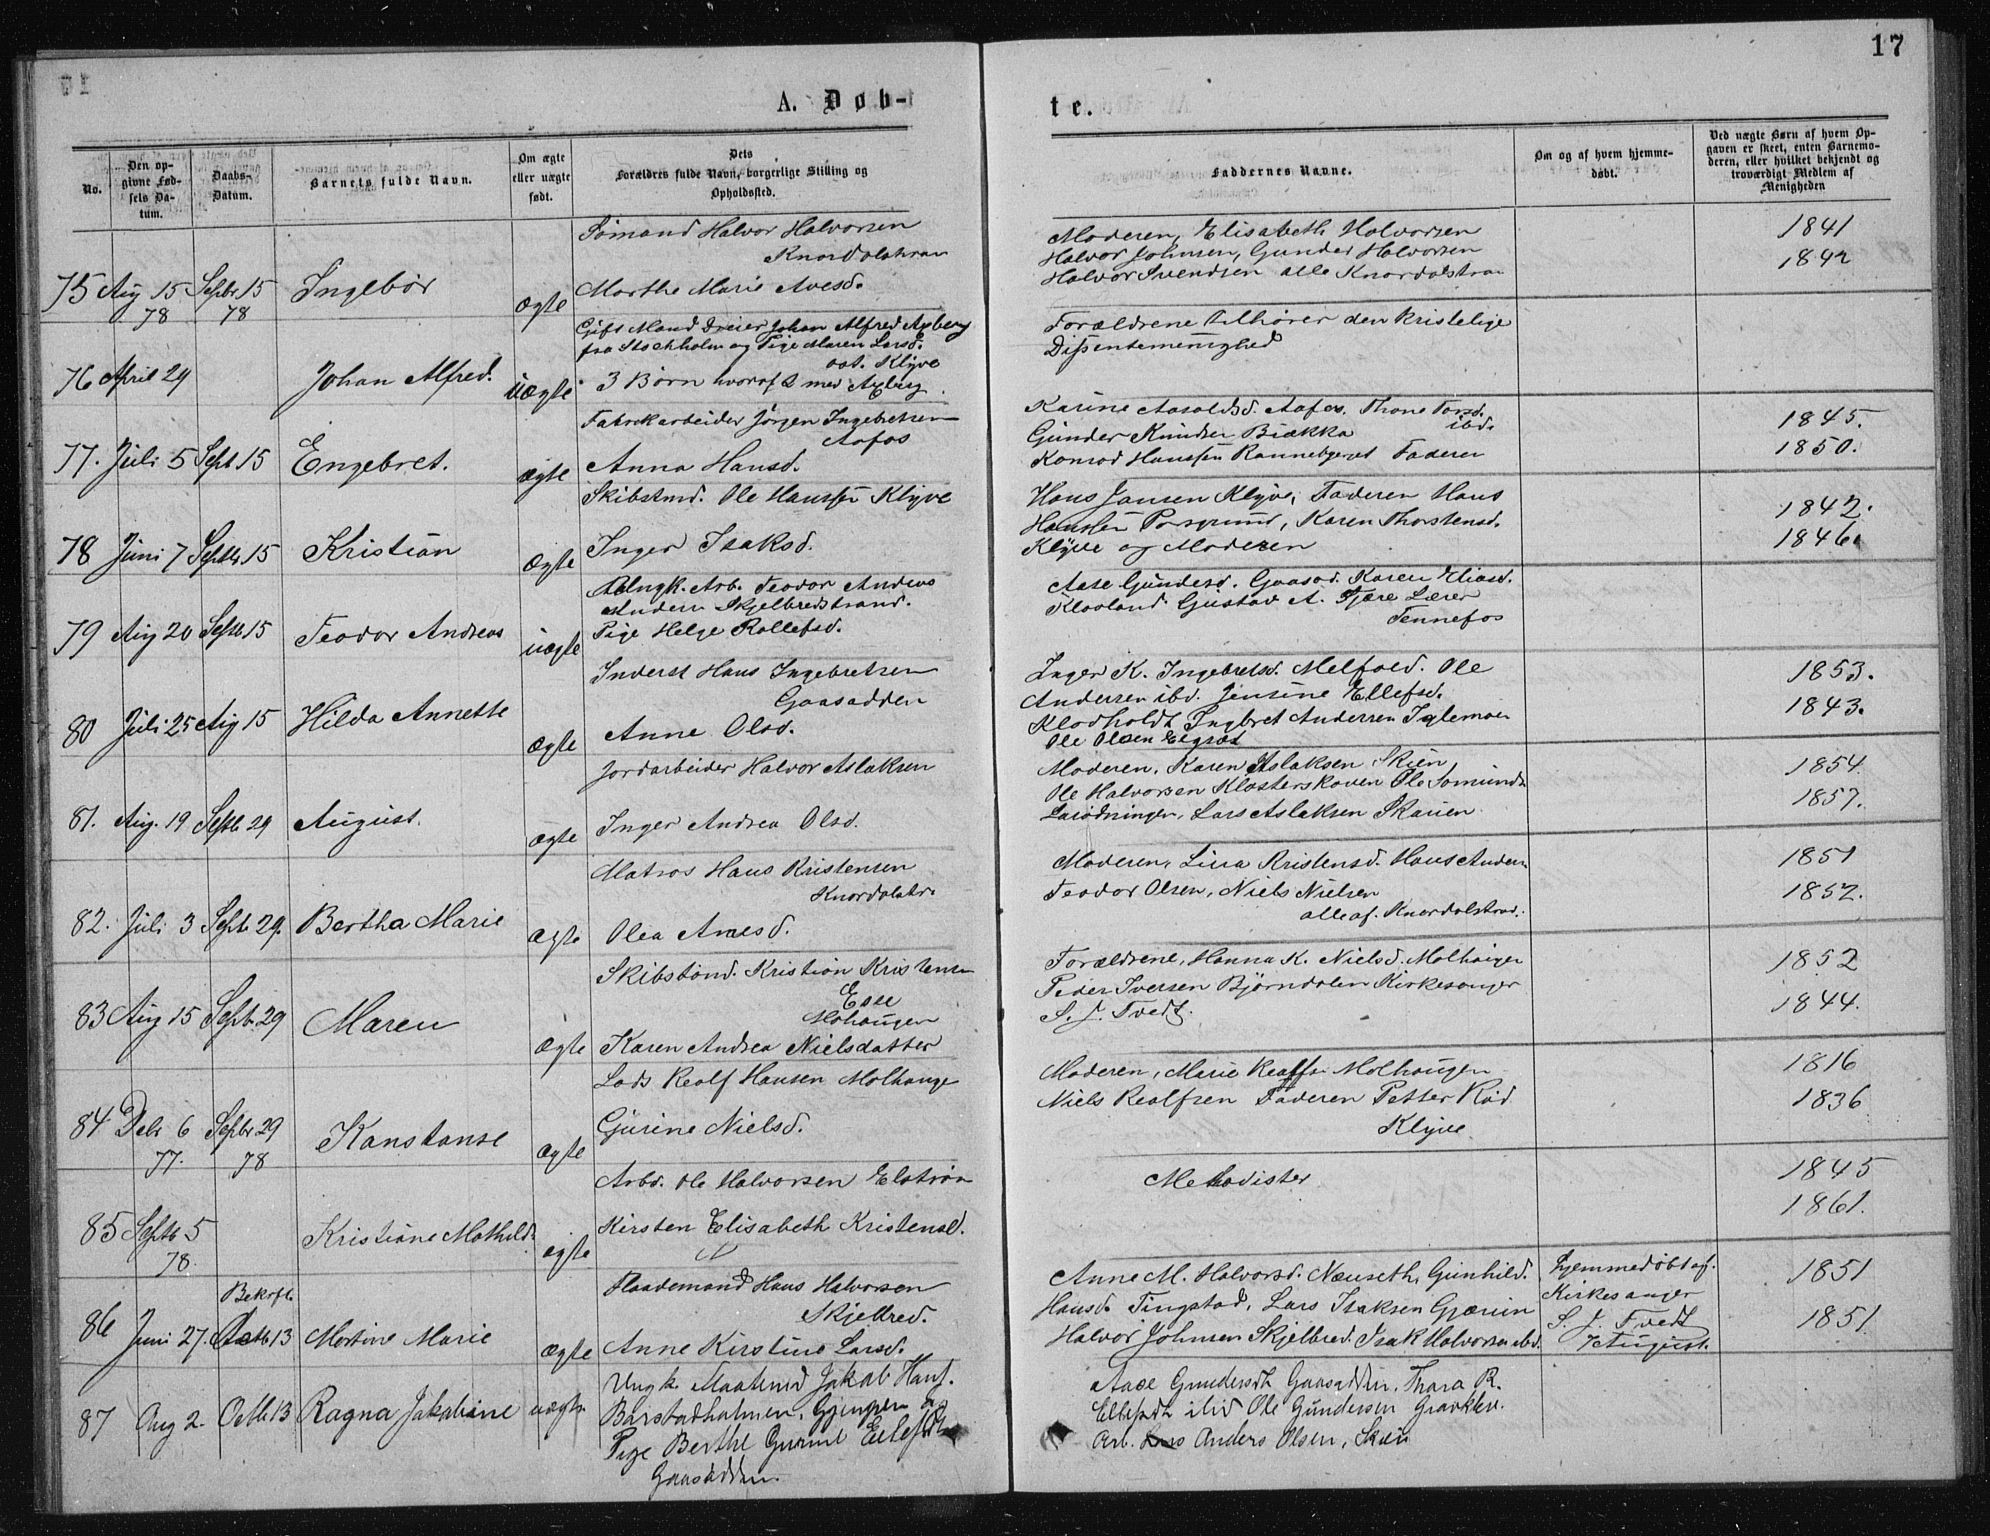 17
A. Døb-
te.
No.
Den op-
givne Fød-
sels Da-
tum.
Daabs-
Datum.
Barnets fulde Navn.
Om ægte
eller uægte
født.
Dets
Forældres fulde Navn, borgerlige Stilling og
Opholdssted.
Faddernes Navne.
Om og af hvem hjemme-
døbt.
Ved uægte Børn af hvem Op-
gaven er skeet, enten Barnemo-
deren, eller hvilket bekjendt og
troværdigt Medlem af
Menigheden
75 Aug 15 Septbr 15 Ingebør ægte
78 78
Sømand Halvor Halvorsen
Marthe Marie
Moderen, Elisabeth Halvorsen
Halvor Johnsen, Gunder Halvorsen
Halvor Svendsen alle
1841
1842
76 April 29 Johan Alfred. uægte
Gift Mand Dreier Johan Alfred Axberg
fra Stockholm og Pige Maren Larsd.
ost. Klyve
3 Børn hvoraf 2 med Axberg
Forældrene tilhører den kristelige
Dissentemenighed
77. Juli 5 Sept 15 Engebret. ægte
Fabrikarbeider Jørgen Ingebretsen
Aafos
Anna Hansd.
Karine Aafos, Thone
ibd.
Gunder Knudsen Biække
Konrod Hanssen Faderen
1845.
1850.
78 Juni 7 Septb 15 Kristian ægte
Skibstmd. Ole Hanssen Klyve
Inger Isaksd.
Hans Jansen Klyve, Faderen Hans
Hanssen Porsgrund, Karen Thorstensd.
Klyve og Moderen
1842.
1846.
79 Aug 20 Septb 15 Teodor Andreas uægte
Ungk. Arb. Teodor Andreas
Andersen Skjelbredstrand.
Pige Helge Rollefsd.
Aase Gundersd. Gaasad. Karen Eliasd.
Klovland Gustav A. Lærer
Tennefos
80 Juli 25 Aug 15 Hilda Annette ægte
Inderst Hans Ingebretsen
Gaasadden
Anne Olsd.
Inger K. Ingebretsd. Melfald. Ole
Andersen ibd. Jensine Ellefsd.
Klovholdt Ingbret Andersen
Ole Olsen
1853.
1843.
81. Aug. 19 Septb 29 August. ægte
Jordarbeider Halvor Aslaksen
Inger Andrea Olsd.
Moderen, Karen Aslaksen, Skien
Ole Halvorsen Klosterskoven Ole
Lars Aslaksen Skauen
1854.
1857.
82. Juli 3 Septb 29. Bertha Marie ægte
Matros Hans Kristensen
Olea
Moderen, Lina Kristensd. Hans Andersen
Teodor Olsen, Niels Nielsen
alle af
1851
1852.
83 Aug 15 Septb. 29 Maren ægte
Skibstmd. Kristian Kristensen
Esse
Mohaugen
Karen Andrea Nielsdatter
Forældrene, Hanna K. Nielsd. Molhaugen
Peder Iversen Bjørndalen Kirkesanger
S. J. Tvedt.
1852
1844.
84 Debr 6 Septbr 29 Konstanse ægte
77. 78
Lods Realf Hansen Molhauge
Gurine Nielsd.
Moderen, Marie Realfsen Molhaugen
Niels Realfsen Faderen Petter Kød
Klyve
1816
1836
85 Septb 5 Kristiane Mathilde ægte
78.
Arbd. Ole Halvorsen Elstrøm
Kirsten Elisabeth Kristensd.
Methodister
1845
1861.
Bekræft.
86 Juni 27. Octb 13 Martine Marie ægte
Plademand Hans Halvorsen
Skjelbred.
Anne Kirstine Larsd.
Anne M. Halvorsd. Næuseth, Gunhild.
Hansd. Tingstad, Lars Isaksen
Halvor Johnsen Skjelbred. Isak Halvorsen ibd.
hjemmedøbt af.
Kirkesanger
S. J. Tvedt
7 August.
1851
1851
87 Aug 2. Octb 13 Ragna Jakobine uægte
Ungk. Jakob Hans.
Barstadholmen, Gjerpen og
Pige Berthe Gurine Ellefsdt.
Gaasadden.
Aase Gundersdt Gaasadden, Thara R.
Ellefsdt ibid Ole Gundersen Graaklev.
Arb. Anders Olsen, Skien